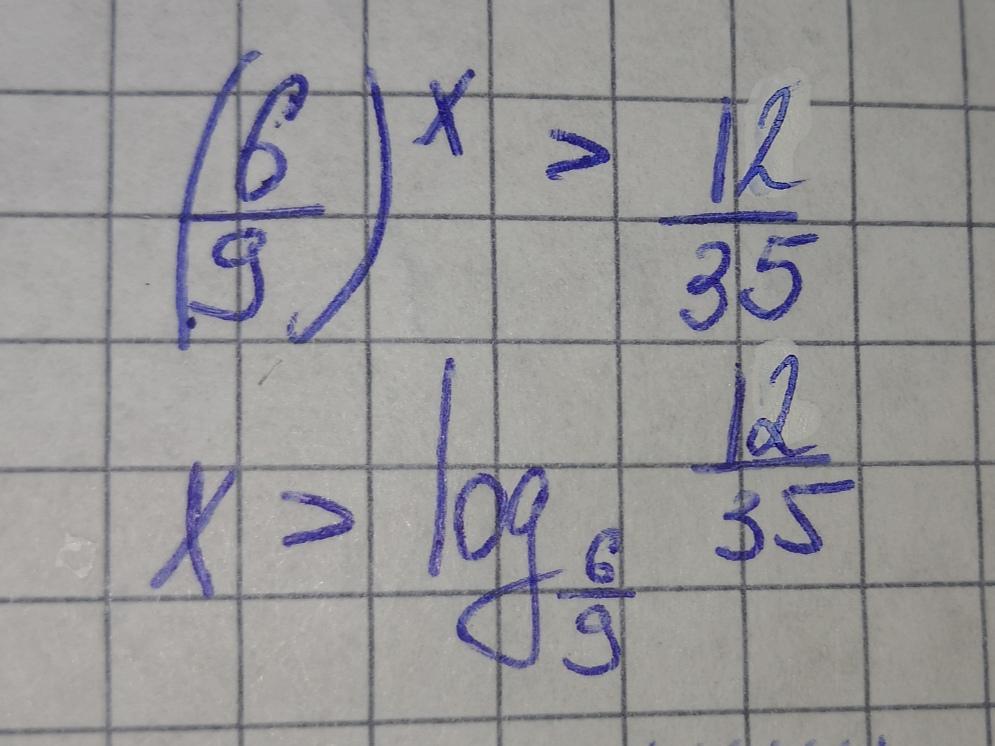 (6/9)^x > 12/35
x > log_{6/9} 12/35